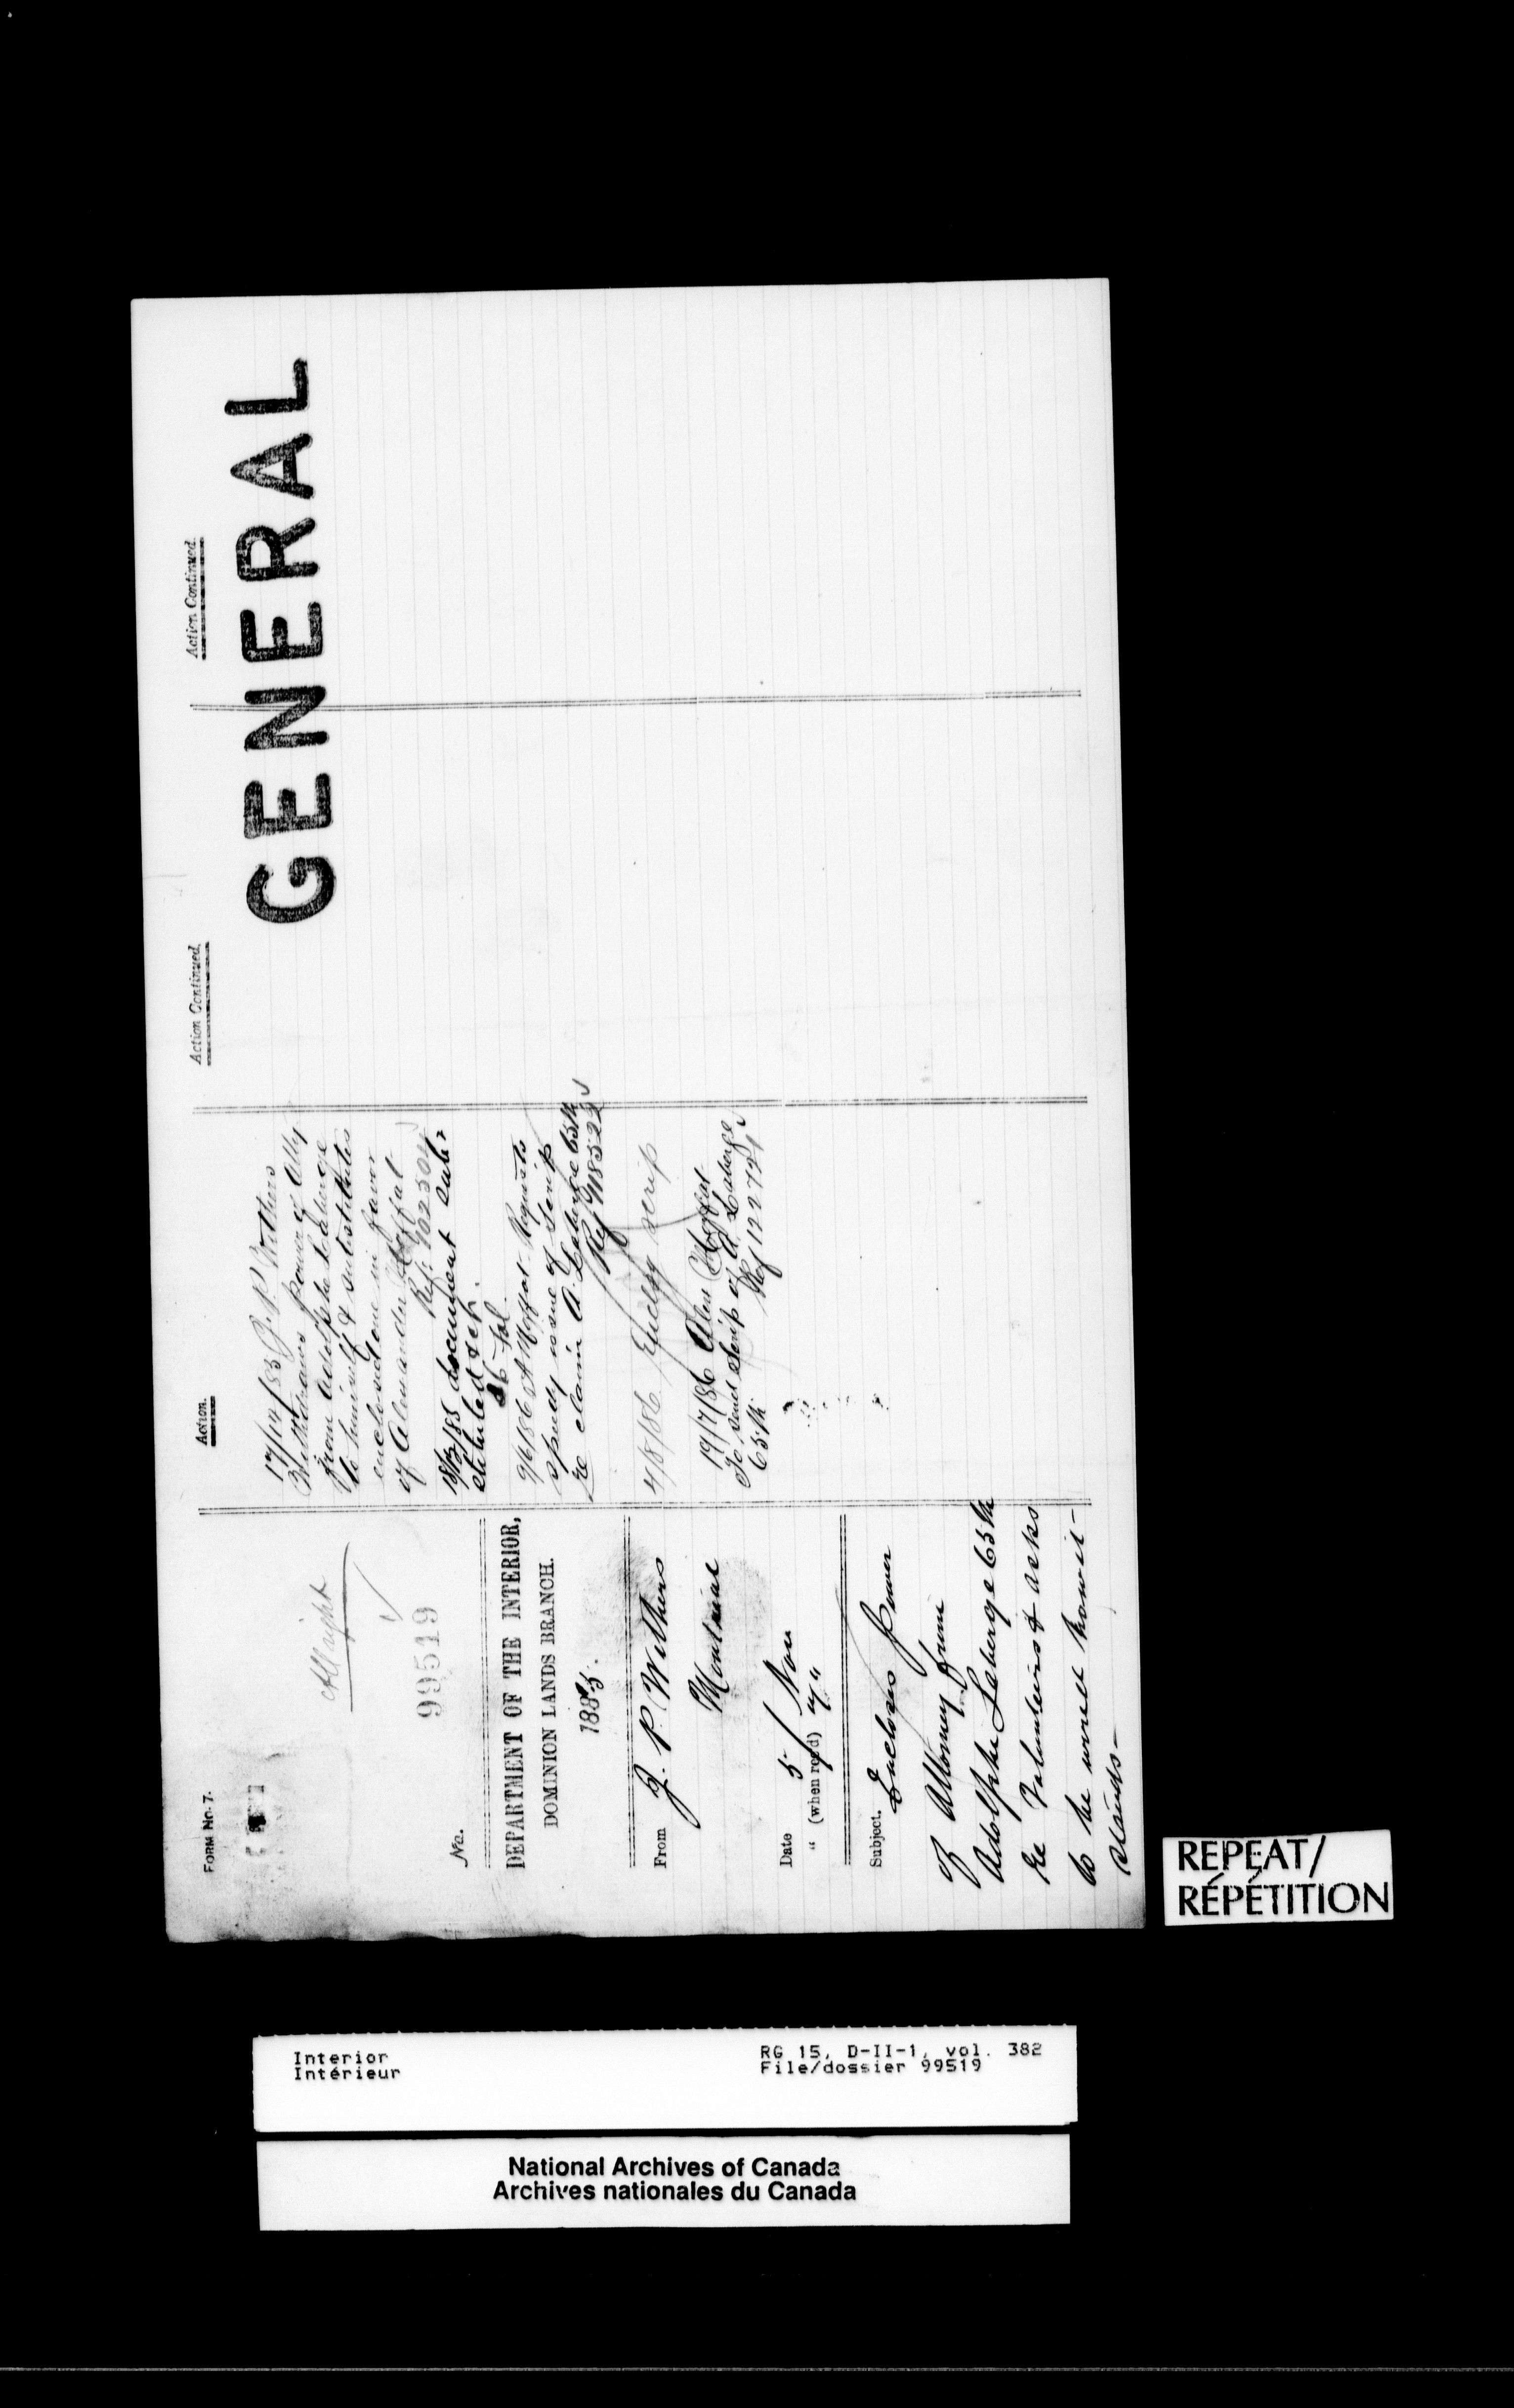 FORM No. 7.
Allright
99519
No.
DEPARTMENT OF THE INTERIOR,
DOMINION LANDS BRANCH.
1885.
From J. P. Withers
Montreal
Date 5 Nov
" (when rec'd) 7 "
Subject. Encloses Power
of Attorney from
Adolphe Laberge 65th
re Volunteers & asks
to be
stands -
Action.
J. P. Withers
Withdraws Power of Atty
from Adolphe Laberge
to himself & substitutes
enclosed one in favor
of Alexander Moffat
Ref: 102350
18/12/85 document subs
stituted
9/6/86 A Moffat Requests
speedy issue of Scrip
re claim A. Laberge 65th
Ref 118522
4/8/86 scrip
19/7/86 Alex Moffat
To send Scrip of A. Laberge
65th Ref 122721
Action Continued.
Action Continued.
GENERAL
REPEAT/
RÉPÉTITION
Interior
Intérieur
RG 15, D-II-1, vol. 382
File/dossier 99519
National Archives of Canada
Archives nationales du Canada